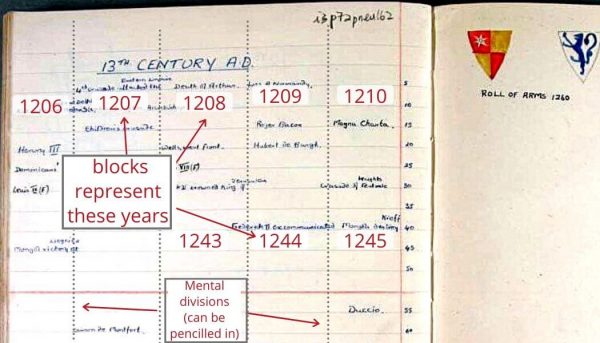 13TH CENTURY A.D.
Eastern Empire
4th crusade attacked the
Death of Arthur.
Normandy.
5
1206
1207
1208
1209
1210
10
Childrens crusade
Roger Bacon
Magna Charta.
15
Henry III
Wells west front.
Hubert de Burgh.
20
Dominicans
VIII (F)
25
Louis IX (F)
crowned king of
Jerusalem
Knights
30
blocks
represent
these years
35
Frederick II excommunicated
Mongols destroy
Kieff
40
1243
1244
1245
Liegnitz
Mongol victory at
45
50
Mental
divisions
(can be
pencilled in)
Duccio.
55
Simon de Montfort.
60
ROLL OF ARMS 1260